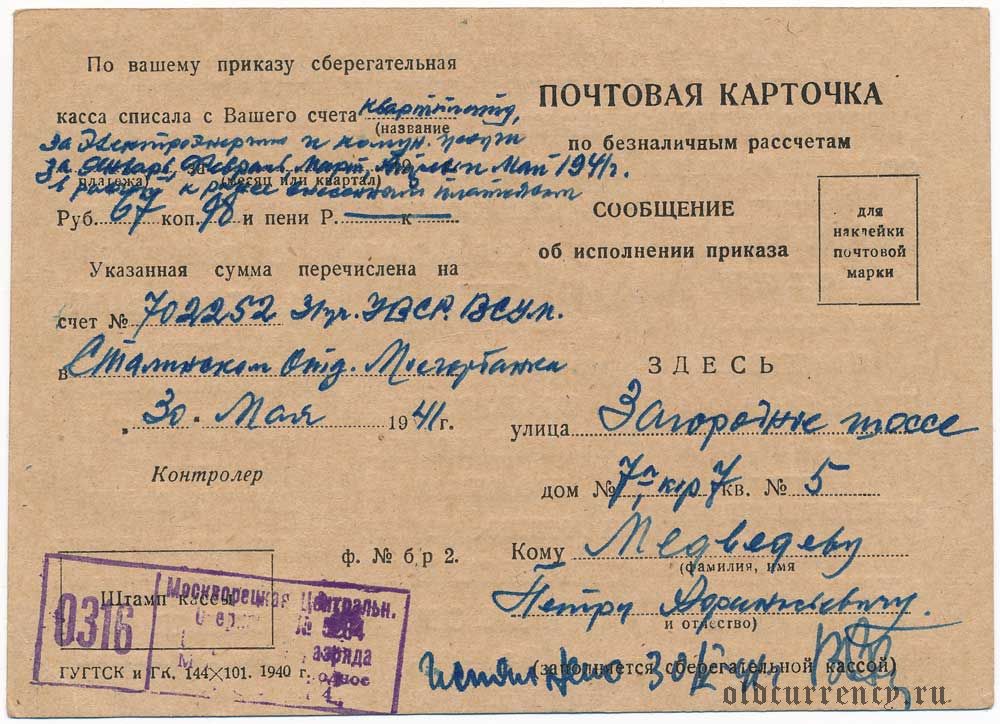 По вашему приказу сберегательная
касса списала с Вашего счета квартплату,
(название
за Электроэнергию и комун. услуги
за Январь, Февраль, Март, Апрель и Май 1941г.
платежа) (месяц или квартал)
к внесенным платежам
Руб. 67 коп. 98 и пени Р. — к —
Указанная сумма перечислена на
счет № 702252
в Сталинском Отд. Мосгорбанка
„ 30 " Мая 1941г.
Контролер
ф. № б/р 2.
Штамп кассы
0316
Москворецкая Центральн.
№
азряда
ГУГТСК и ГК. 144×101. 1940 г.
ПОЧТОВАЯ КАРТОЧКА
по безналичным рассчетам
СООБЩЕНИЕ
об исполнении приказа
для
наклейки
почтовой
марки
ЗДЕСЬ
улица Загородное шоссе
дом № 7а, кор 7 кв. № 5
Кому Медведеву
(фамилия, имя
Петру
и отчество)
(заполняется сберегательной кассой)
Исполнено 30/V 41г.
oldcurrency.ru